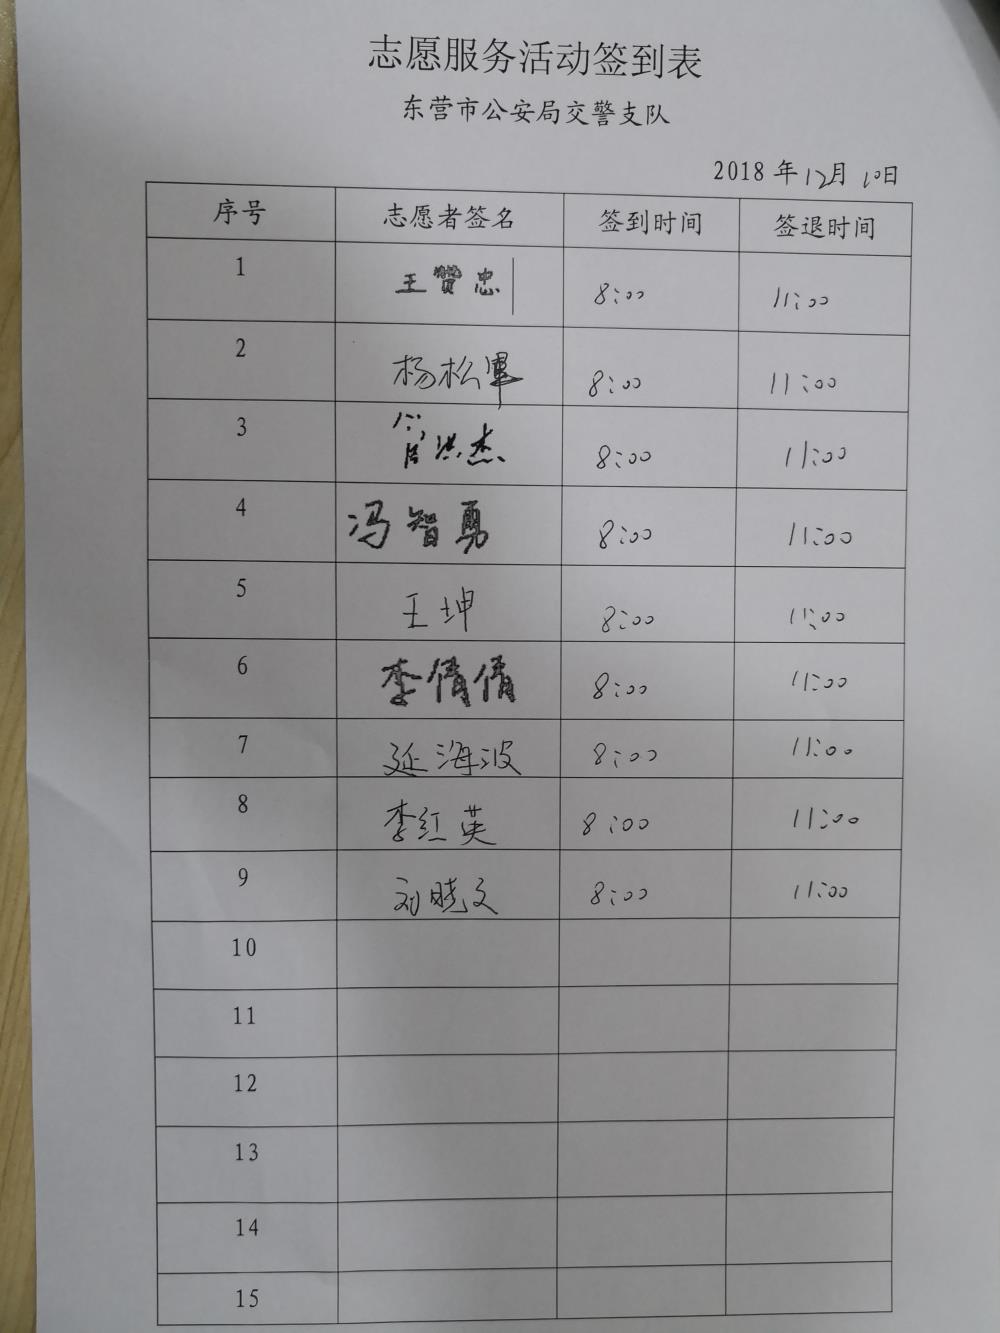 志愿服务活动签到表
东营市公安局交警支队
2018 年 12月 10日
序号 志愿者签名 签到时间 签退时间
1 王赞忠 8:00 11:00
2 杨松军 8:00 11:00
3 洪杰 8:00 11:00
4 冯智勇 8:00 11:00
5 王坤 8:00 11:00
6 李倩倩 8:00 11:00
7 延海波 8:00 11:00
8 李红英 8:00 11:00
9 刘晓文 8:00 11:00
10
11
12
13
14
15